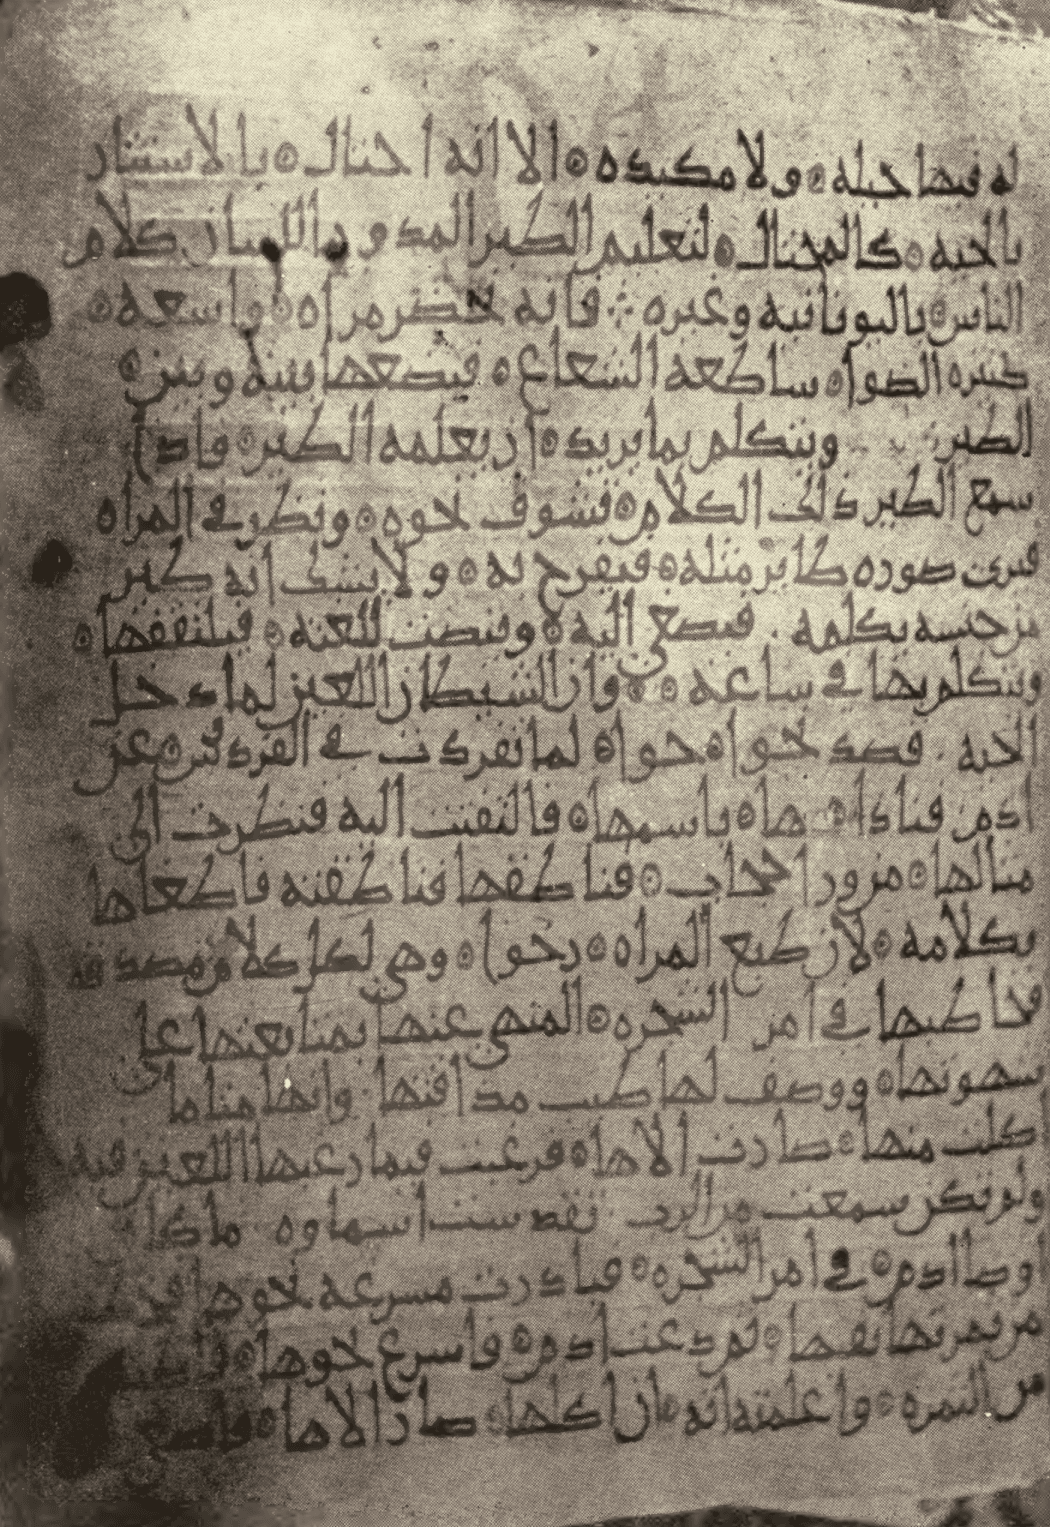 له فيها حيله ولا مكيده الا انه احتال بالاستتار
بالحيه كالمحتال لتعليم الطير المدو باللسان كلام
الناس باليونانيه وغيره فانه يحضر مراه واسعه
كثيره الضوا ساطعه الشعاع فيضعها بينه وبين
الطير ويتكلم بما يريد ان يعلمه الطير فاذا
سمع الطير ذلك الكلام تشوف نحوه ونظر في المراه
فيرى صوره طاير مثله فيفرح به ولا يشك انه طير
من جنسه يكلمه فيصغي اليه وينصت للغته فيلتقفها
ويتكلم بها في ساعه وان الشيطان اللعين لما دخل
الحيه قصد نحو حوا لما تفردت في الفردس عن
ادم فناداها باسمها فالتفتت اليه فنظرت الى
مثالها من ورا حجاب فناطقها فناطقته فاطغاها
بكلامه لان طبع المراه رخوا وهي لكل كلام مصدقه
فخاطبها في امر الشجره المنهي عنها بمتابعتها على
شهوتها ووصف لها طيب مذاقتها وانها متاما
كلت منها صارت الاها فرغبت فيما رغبها اللعين فيه
ولو تكن سمعت من الرب تقدست اسماوه ما كان
وصا ادم في امر الشجره فبادرت مسرعه نحوها
من ثمرتها بفها ثم دعت ادم فاسرع نحوها
من الثمره واعلمته انه ان اكلها صار الاها